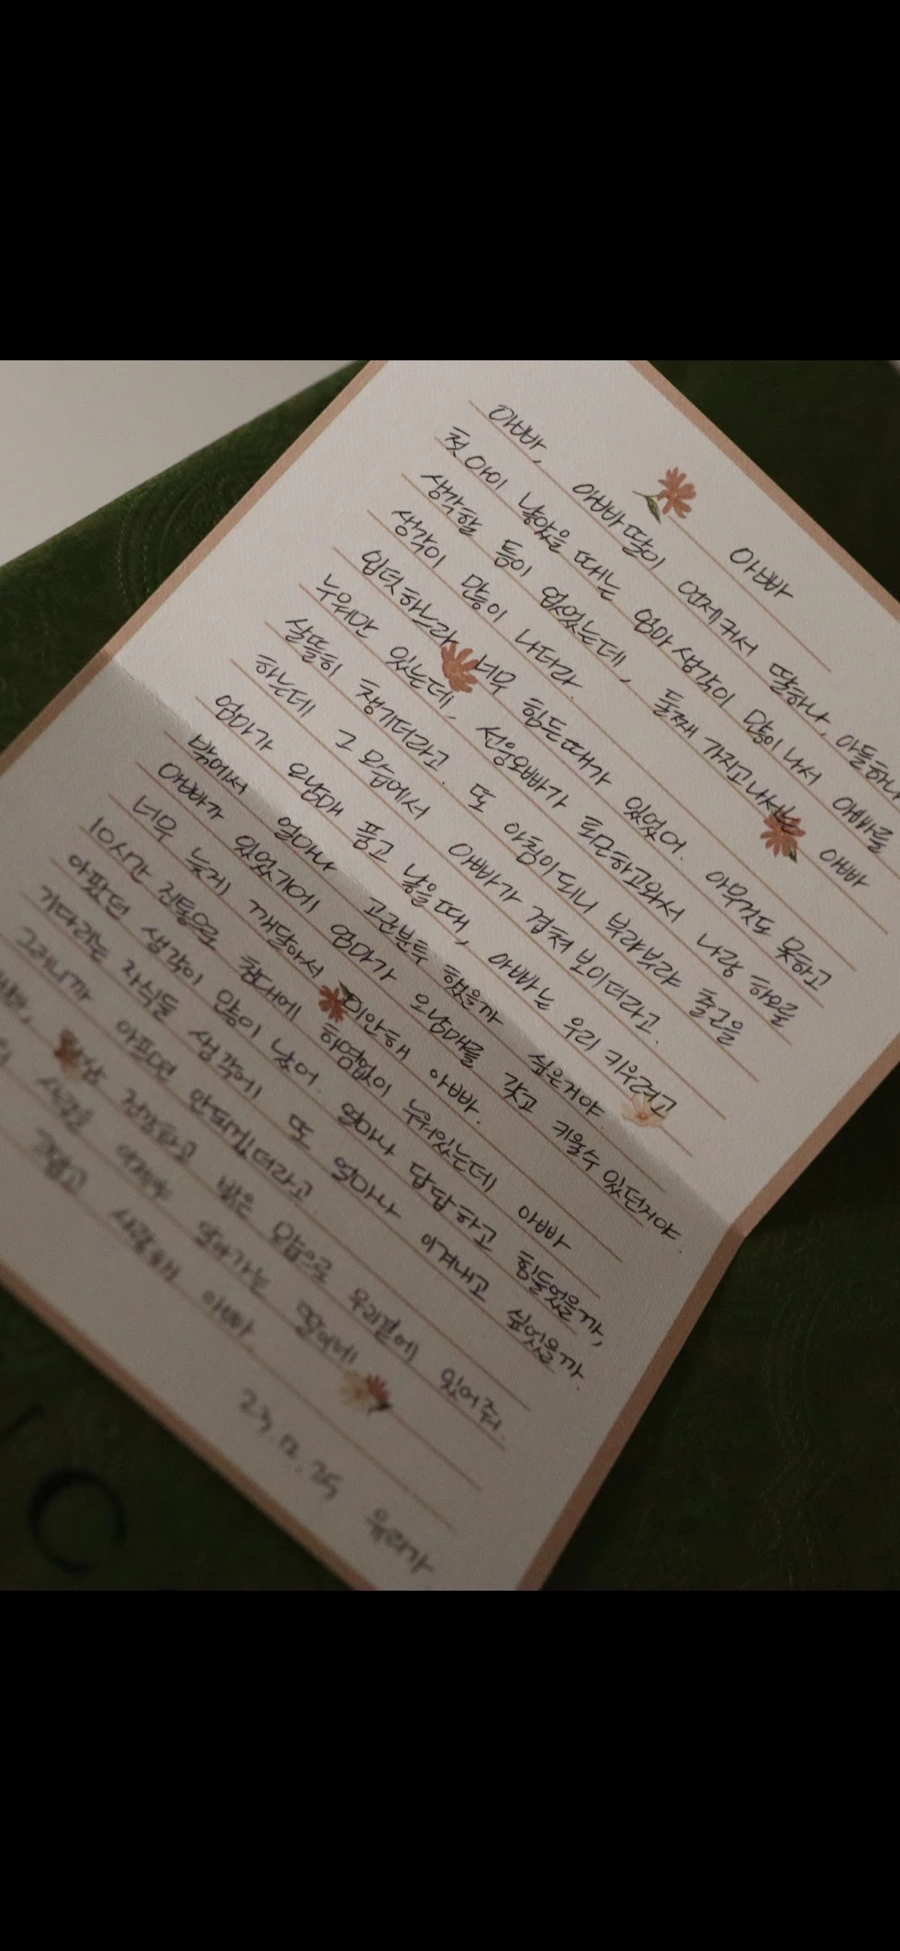 아빠
아빠, 아빠딸이 언제커서 딸하나, 아들하나
첫 아이 낳았을 때는 엄마 생각이 많이 나서 아빠를
생각할 틈이 없었는데, 둘째 가지고나서는 아빠
생각이 많이 나더라.
입덧하느라 너무 힘든때가 있었어. 아무것도 못하고
누워만 있는데, 선웅오빠가 퇴근하고와서 나랑 하율
살뜰히 챙기더라고. 또 아침이되니 부랴부랴 출근을
하는데 그 모습에서 아빠가 겹쳐 보이더라고.
엄마가 오남매 품고 낳을때, 아빠는 우리 키우려고
밖에서 얼마나 고군분투 했을까 싶은거야.
아빠가 있었기에 엄마가 오남매를 갖고 키울수 있던거야
너무 늦게 깨달아서 미안해 아빠.
10시간 진통으로 침대에 하염없이 누워있는데 아빠
아팠던 생각이 많이 났어. 얼마나 답답하고 힘들었을까,
기다리는 자식들 생각에 또 얼마나 이겨내고 싶었을까.
그러니까 아프면 안되겠더라고.
건강하고 밝은 모습으로 우리곁에 있어줘.
알아가는 딸이네
사랑해 아빠.
23. 12. 25